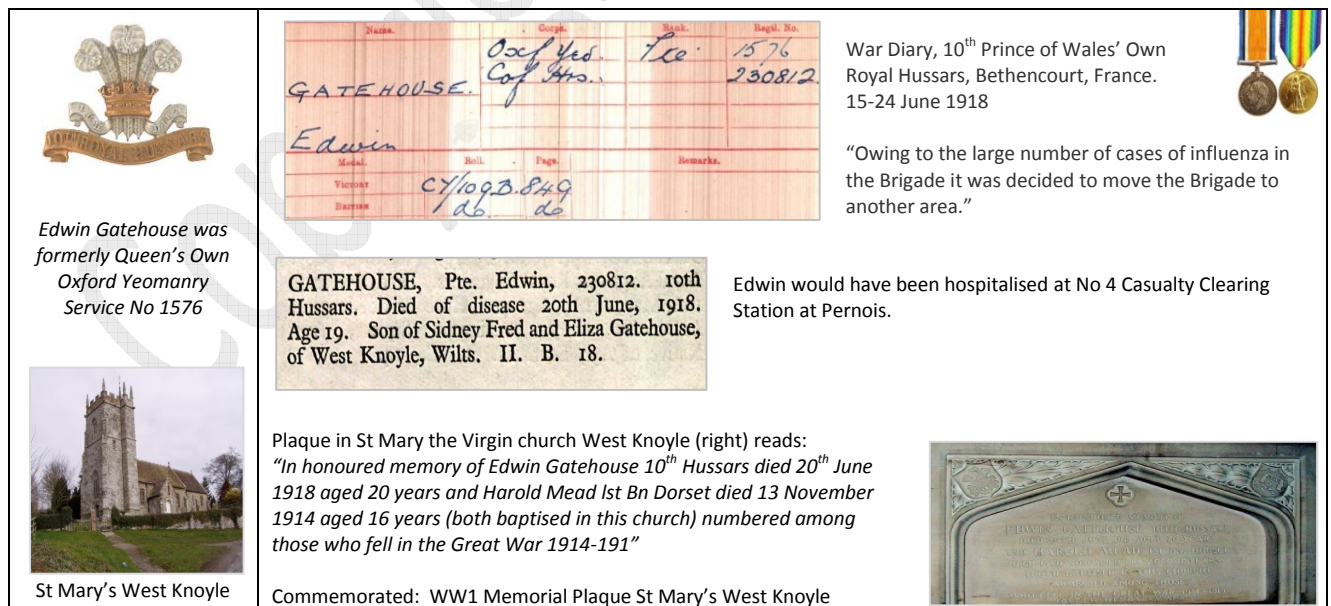 10TH ROYAL HUSSARS
Edwin Gatehouse was
formerly Queen's Own
Oxford Yeomanry
Service No 1576
St Mary's West Knoyle
Name. Corps. Rank. Regtl. No.
Oxf Yeo. Pte 1576
C of Hrs. 230812.
GATEHOUSE.
Edwin
Medal. Roll. Page. Remarks.
Victory CY/109B. 849
British do do
War Diary, 10th Prince of Wales' Own
Royal Hussars, Bethencourt, France.
15-24 June 1918
"Owing to the large number of cases of influenza in
the Brigade it was decided to move the Brigade to
another area."
GATEHOUSE, Pte. Edwin, 230812. 10th
Hussars. Died of disease 20th June, 1918.
Age 19. Son of Sidney Fred and Eliza Gatehouse,
of West Knoyle, Wilts. II. B. 18.
Edwin would have been hospitalised at No 4 Casualty Clearing
Station at Pernois.
Plaque in St Mary the Virgin church West Knoyle (right) reads:
"In honoured memory of Edwin Gatehouse 10th Hussars died 20th June
1918 aged 20 years and Harold Mead lst Bn Dorset died 13 November
1914 aged 16 years (both baptised in this church) numbered among
those who fell in the Great War 1914-191"
Commemorated: WW1 Memorial Plaque St Mary's West Knoyle